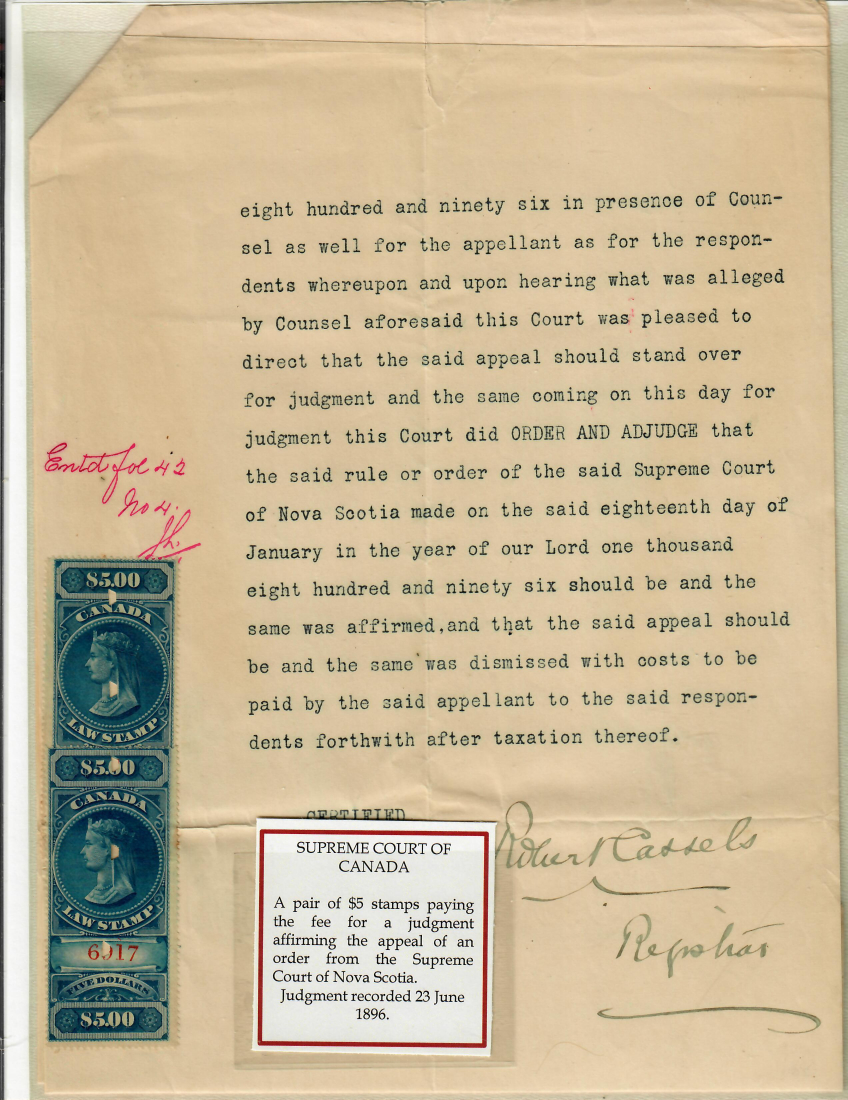 eight hundred and ninety six in presence of Coun-
sel as well for the appellant as for the respon-
dents whereupon and upon hearing what was alleged
by Counsel aforesaid this Court was pleased to
direct that the said appeal should stand over
for judgment and the same coming on this day for
judgment this Court did ORDER AND ADJUDGE that
the said rule or order of the said Supreme Court
of Nova Scotia made on the said eighteenth day of
January in the year of our Lord one thousand
eight hundred and ninety six should be and the
same was affirmed,and that the said appeal should
be and the same was dismissed with costs to be
paid by the said appellant to the said respon-
dents forthwith after taxation thereof.
Entd fol 42
No 4.
$5.00
CANADA
LAW STAMP
$5.00
CANADA
LAW STAMP
6917
FIVE DOLLARS
$5.00
CERTIFIED
Robert Cassels
Registrar
SUPREME COURT OF
CANADA
A pair of $5 stamps paying
the fee for a judgment
affirming the appeal of an
order from the Supreme
Court of Nova Scotia.
Judgment recorded 23 June
1896.